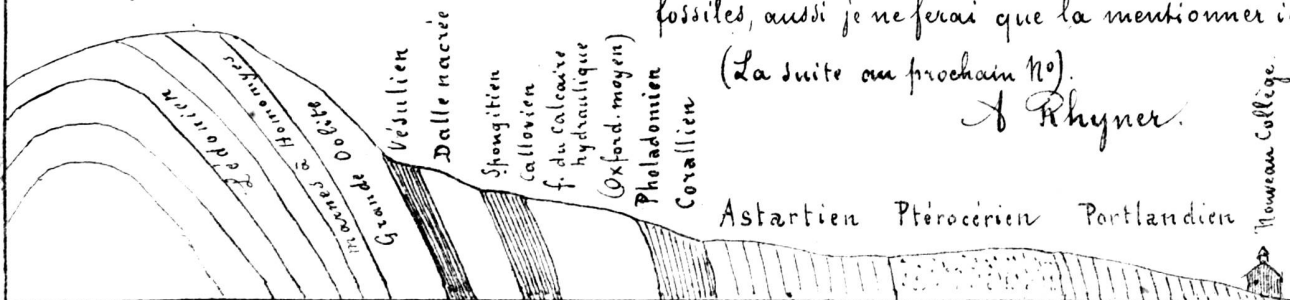 fossiles, aussi je ne ferai que la mentionner i
(La suite au prochain No).
A Rhyner.
Lédonien
marnes à Homomyes
Grande Oolite
Vésulien
Dalle nacrée
Spongitien
Callovien
f. du Calcaire
hydraulique
(Oxford. moyen)
Pholadomien
Corallien
Astartien Ptérocérien Portlandien
Nouveau Collège.